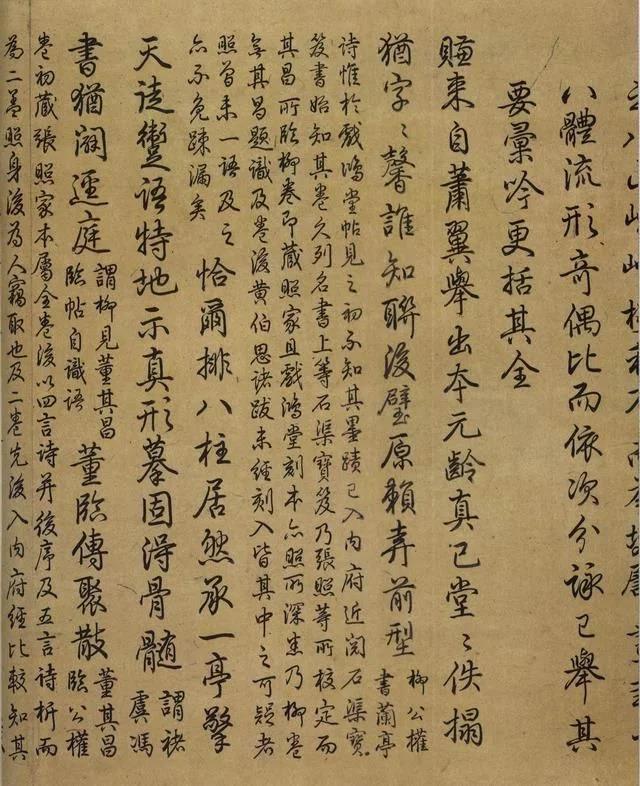 八體流形奇偶比而依次分詠已舉其
要彙吟更括其全
賺來自蕭翼舉出本元齡真已堂〻佚搨
猶字〻馨誰知聯後璧原賴弆前型
柳公權
書蘭亭
詩惟於戲鴻堂帖見之初不知其墨蹟已入內府近閱石渠寶
笈書始知其卷久列名書上等石渠寶笈乃張照等所校定而
其昌所臨柳卷即藏照家且戲鴻堂刻本亦照所深悉乃柳卷
無其昌題識及卷後黃伯思諸跋未經刻入皆其中之可疑者
照曾未一語及之
亦不免疎漏矣
恰爾排八柱居然承一亭擎
天徒躗語特地示真形摹固得骨髓
謂褚
虞馮
書猶溯逕庭
謂柳見董其昌
臨帖自識語
董臨傳聚散
董其昌
臨公權
卷初藏張照家本屬全卷後以四言詩并後序及五言詩析而
為二蓋照身後為人竊取也及二卷先後入內府經比較知其